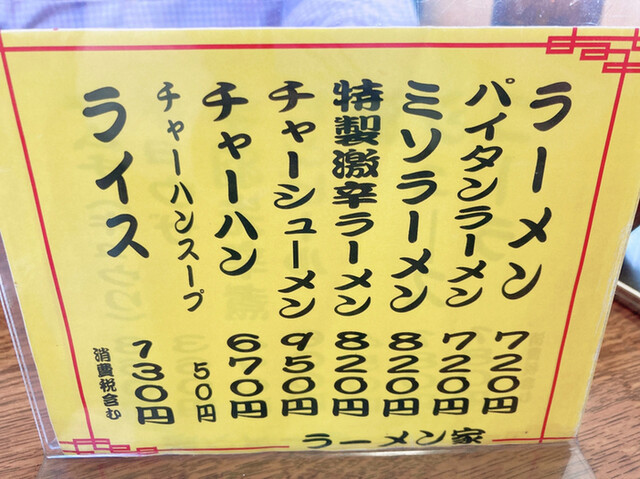 ラーメン 720円
パイタンラーメン 720円
ミソラーメン 820円
特製激辛ラーメン 820円
チャーシューメン 950円
チャーハン 670円
チャーハンスープ 50円
ライス 130円
消費税含む
ラーメン家